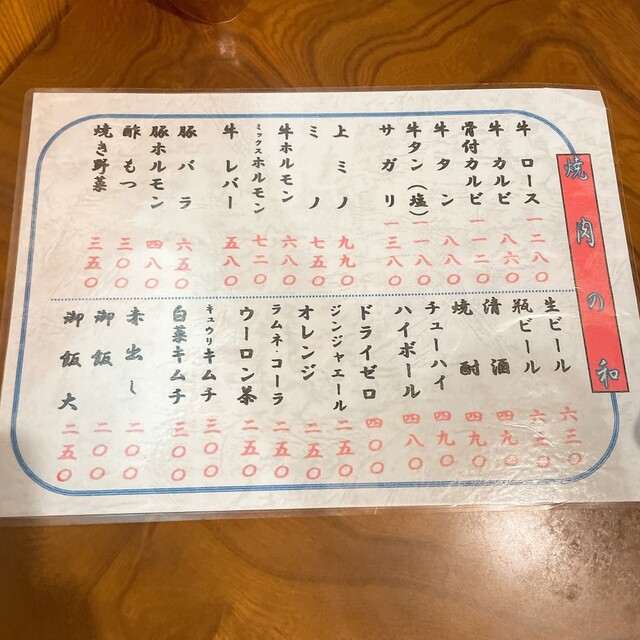 焼肉の和
牛ロース 一二八〇
牛カルビ 八六〇
骨付カルビ
牛タン
牛タン(塩) 一一八〇
サガリ 一三八〇
上ミノ 九九〇
ミノ 七五〇
牛ホルモン 六八〇
ミックスホルモン 七二〇
牛レバー 五八〇
豚バラ 六五〇
豚ホルモン 四八〇
酢もつ 三〇〇
焼き野菜 三五〇
生ビール 六三〇
瓶ビール 六三〇
清酒 四九〇
焼酎 四九〇
チューハイ 四九〇
ハイボール 四八〇
ドライゼロ 四〇〇
ジンジャエール 二五〇
オレンジ 二五〇
ラムネ・コーラ 二五〇
ウーロン茶 二五〇
キュウリキムチ 三〇〇
白菜キムチ 三〇〇
赤出し 二〇〇
御飯 二〇〇
御飯大 二五〇